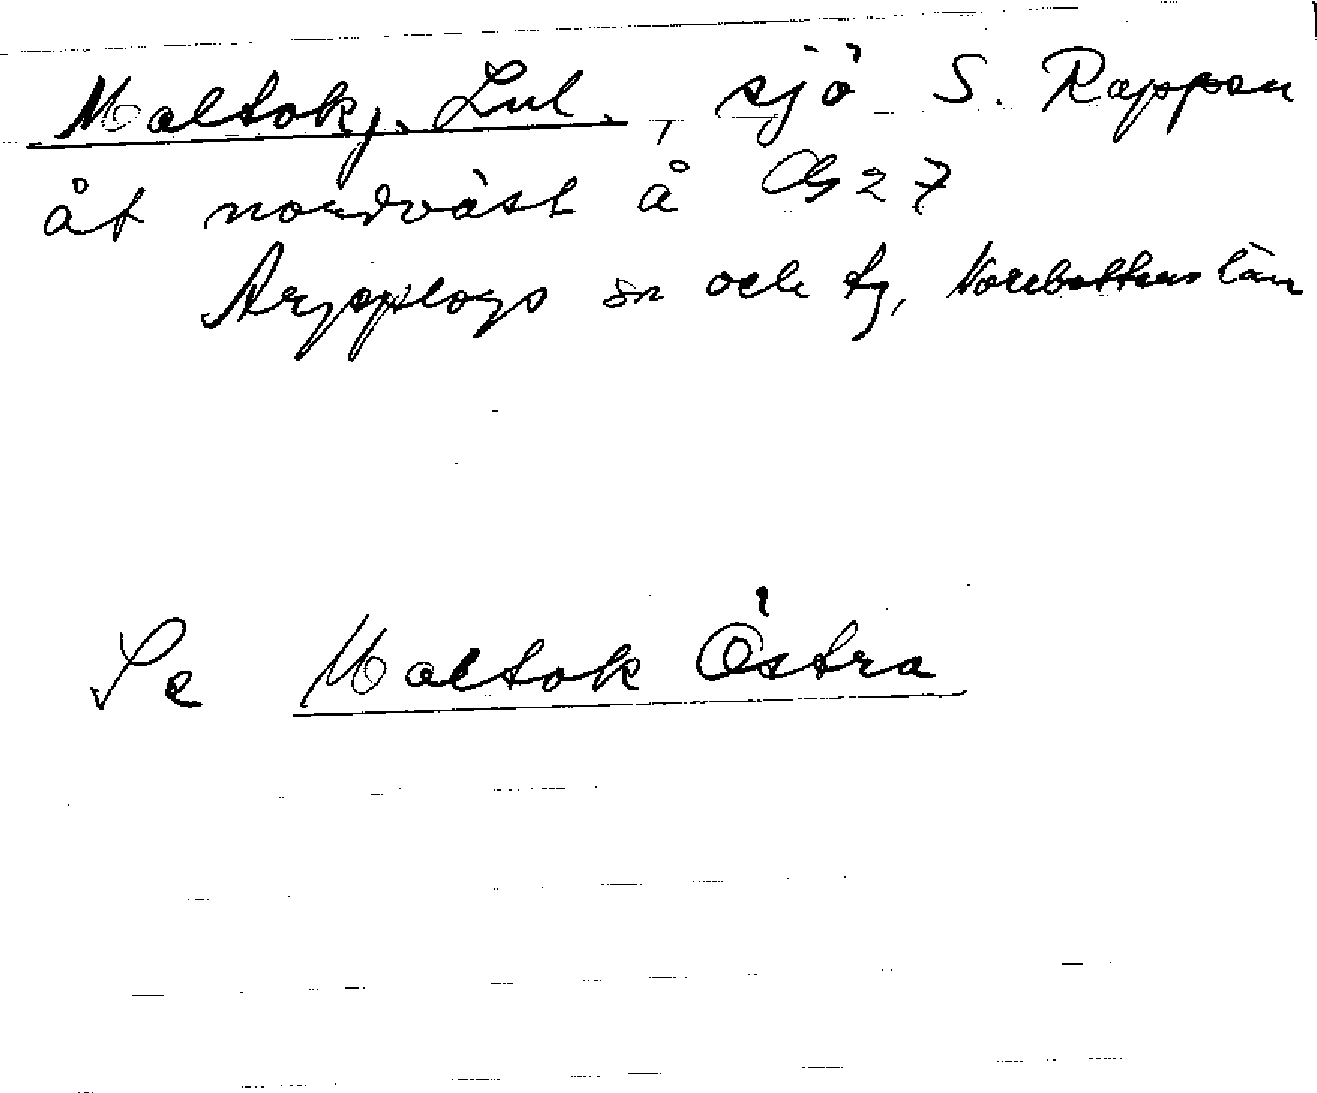 Maltokj. Lul., sjö S. Rappen
åt nordväst å GB 27
Arjeplogs sn och tg, Norrbottens län
Se Maltok Östra